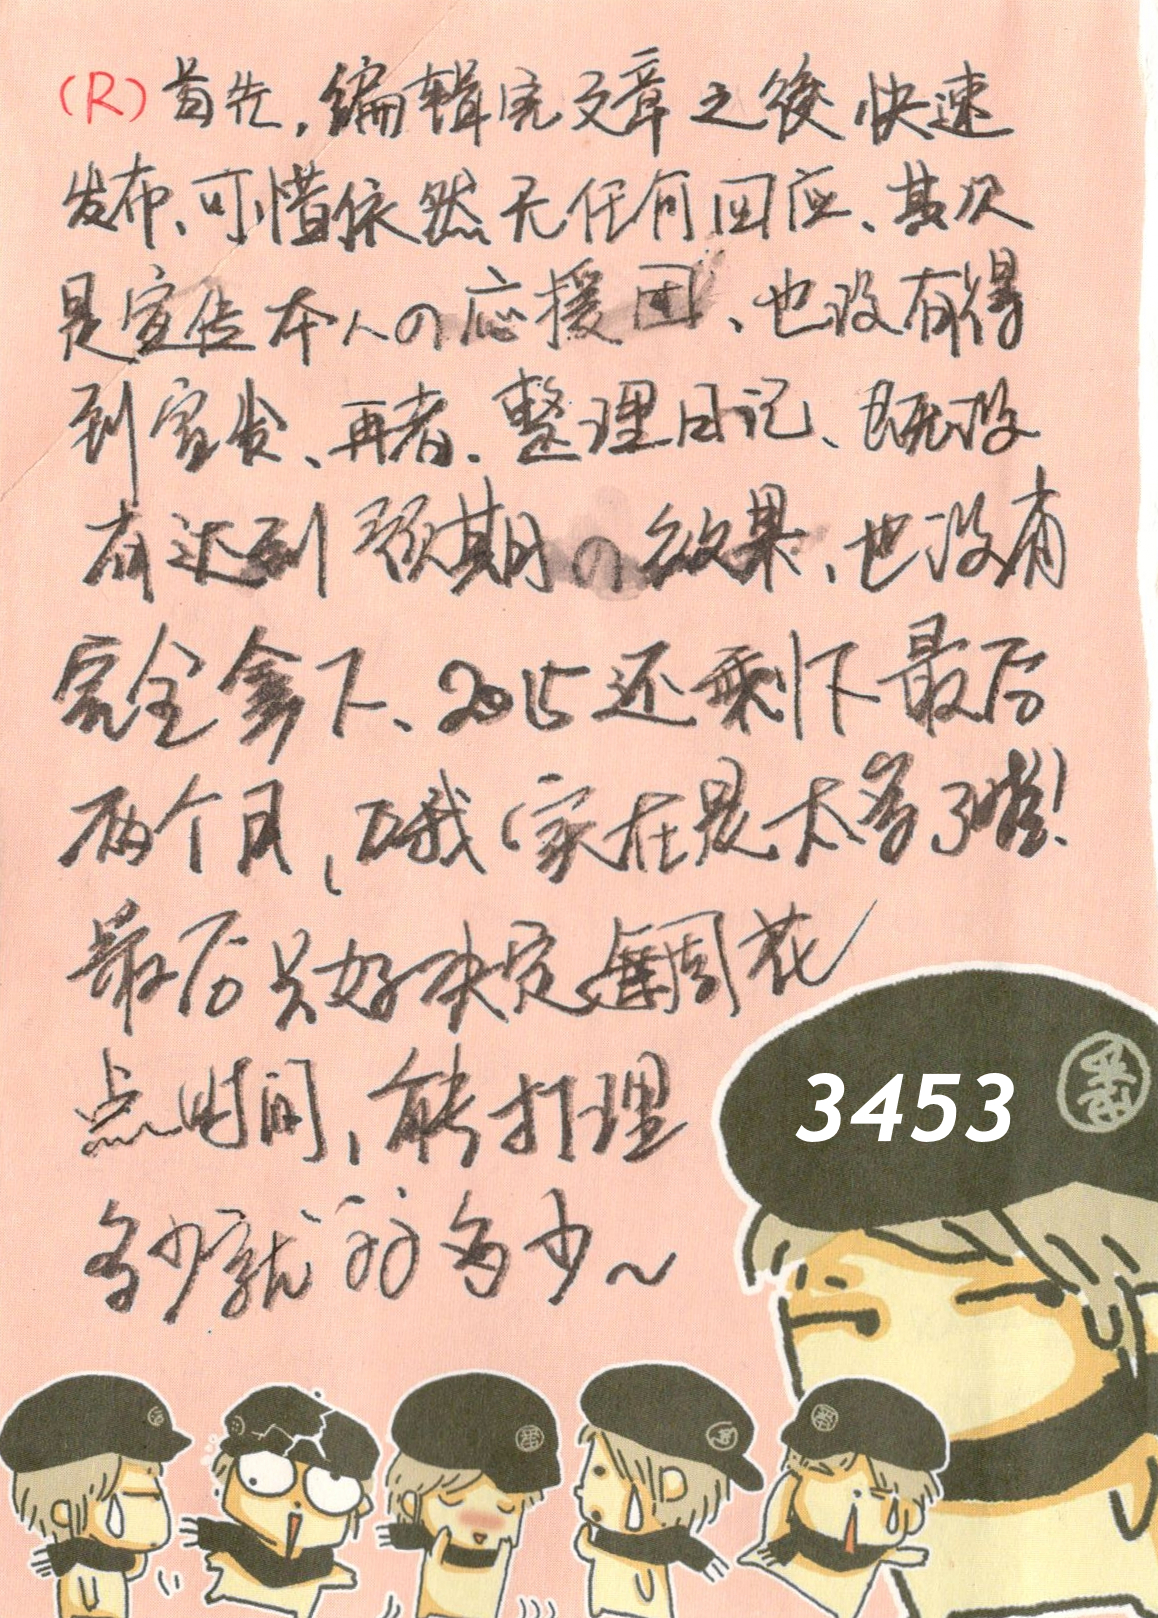 (R)首先,编辑完文章之後快速
发布、可惜依然无任何回应、其次
是宣传本人の応援団、也没有得
到宣发、再者、整理日记、既没
有达到预期の效果、也没有
完全拿下、2015还剩下最后
两个月,哦家在是太多了!
最后只好决定每周花
点时间,能打理
多少就多少~
3453
番